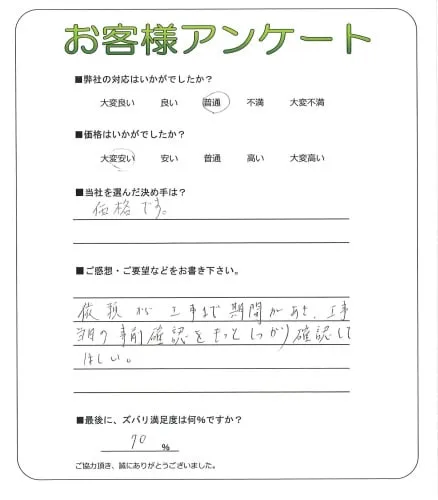 お客様アンケート
■弊社の対応はいかがでしたか?
大変良い 良い 普通 不満 大変不満
■価格はいかがでしたか?
大変安い 安い 普通 高い 大変高い
■当社を選んだ決め手は?
価格です。
■ご感想・ご要望などをお書き下さい。
依頼から工事まで期間があき、工事
当日の事前確認をもっとしっかり確認して
ほしい。
■最後に、ズバリ満足度は何%ですか?
70 %
ご協力頂き、誠にありがとうございました。